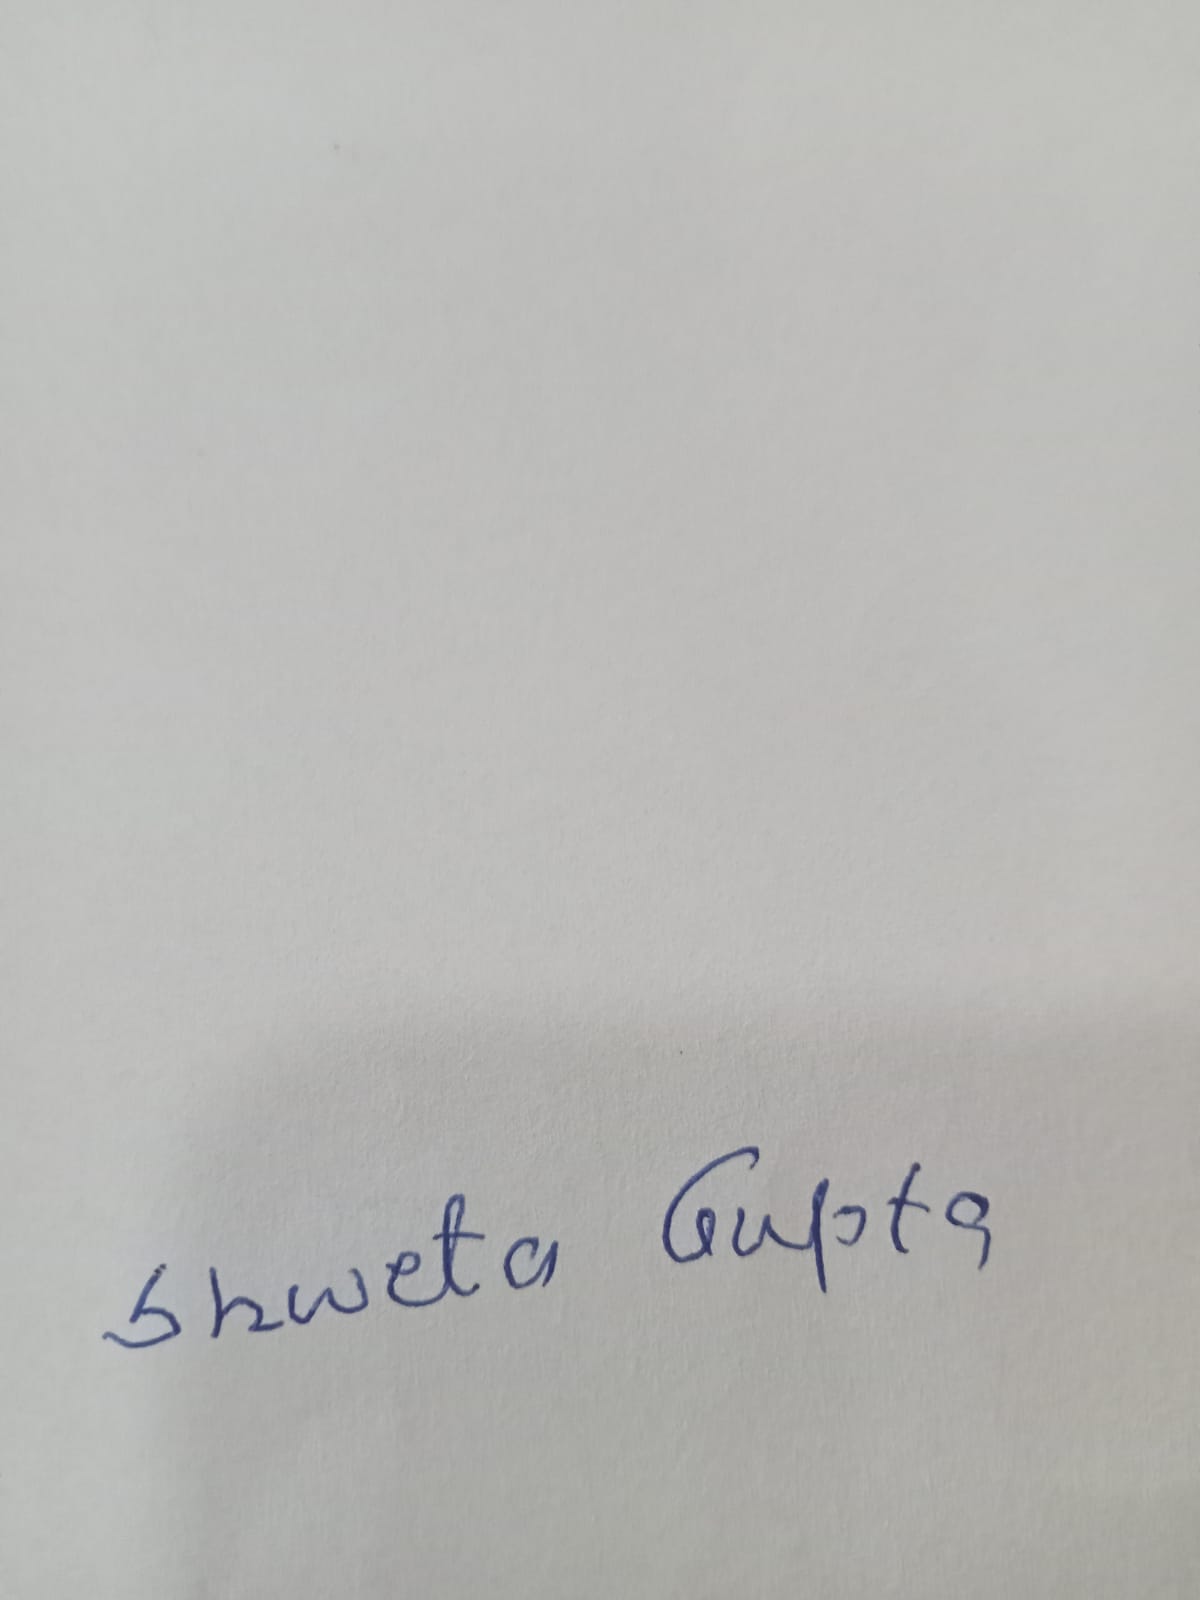 Shweta Gupta